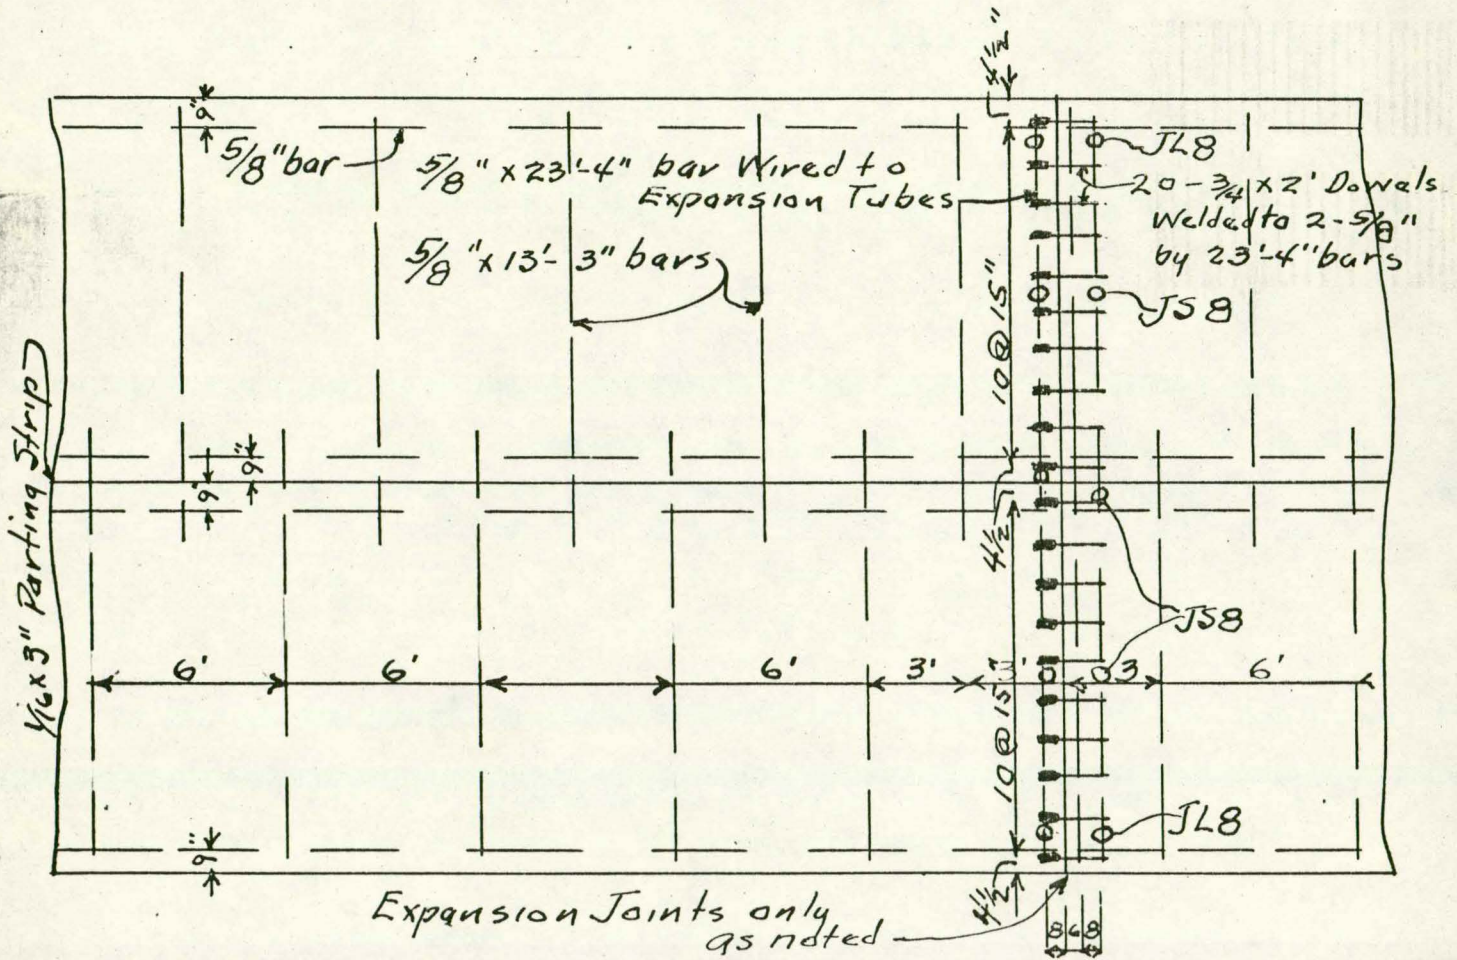 4½"
9"
5/8" bar
5/8" x 23'-4" bar Wired to
Expansion Tubes
JL8
20 - ¾ x 2' Dowals
Welded to 2 - 5/8"
by 23'-4" bars
5/8" x 13'-3" bars
JS8
10 @ 15"
1/16 x 3" Parting Strip
9"
9"
4½
JS8
6'
6'
6'
3'
3'
3
6'
10 @ 15"
JL8
9"
4½
Expansion Joints only
as noted
8 6 8